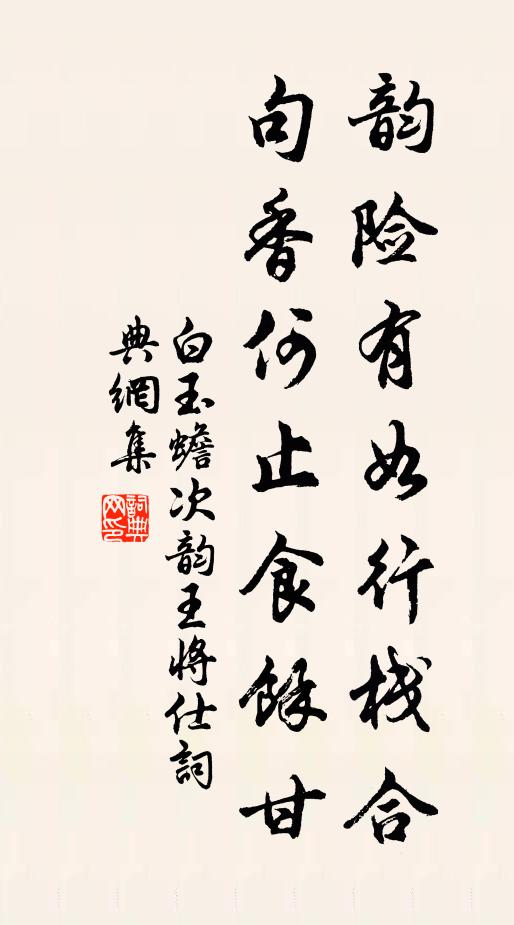 韵险有如行栈合
句香何止食馀甘
白玉蟾次韵王将仕詞
典網集
詞典网印